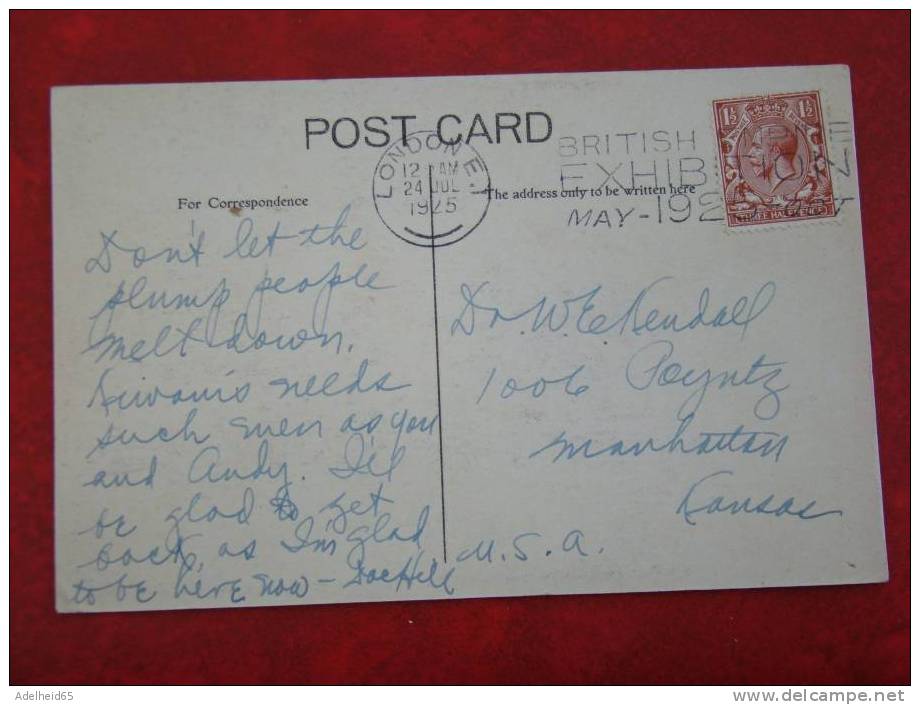 POST CARD
LONDON E.1
12 AM
24 JUL
1925
BRITISH
EXHIB
MAY - 192
1½ 1½
THREE HALFPENCE
For Correspondence
The address only to be written here
Don't let the
plump people
melt down.
Kiwanis needs
such men as you
and Andy. I'll
be glad to get
back, as I'm glad
to be here now - Doc Hill
Dr. W E Kendall
1006 Poyntz
Manhattan
Kansas
U. S. A.
Adelheid65
www.delcampe.net